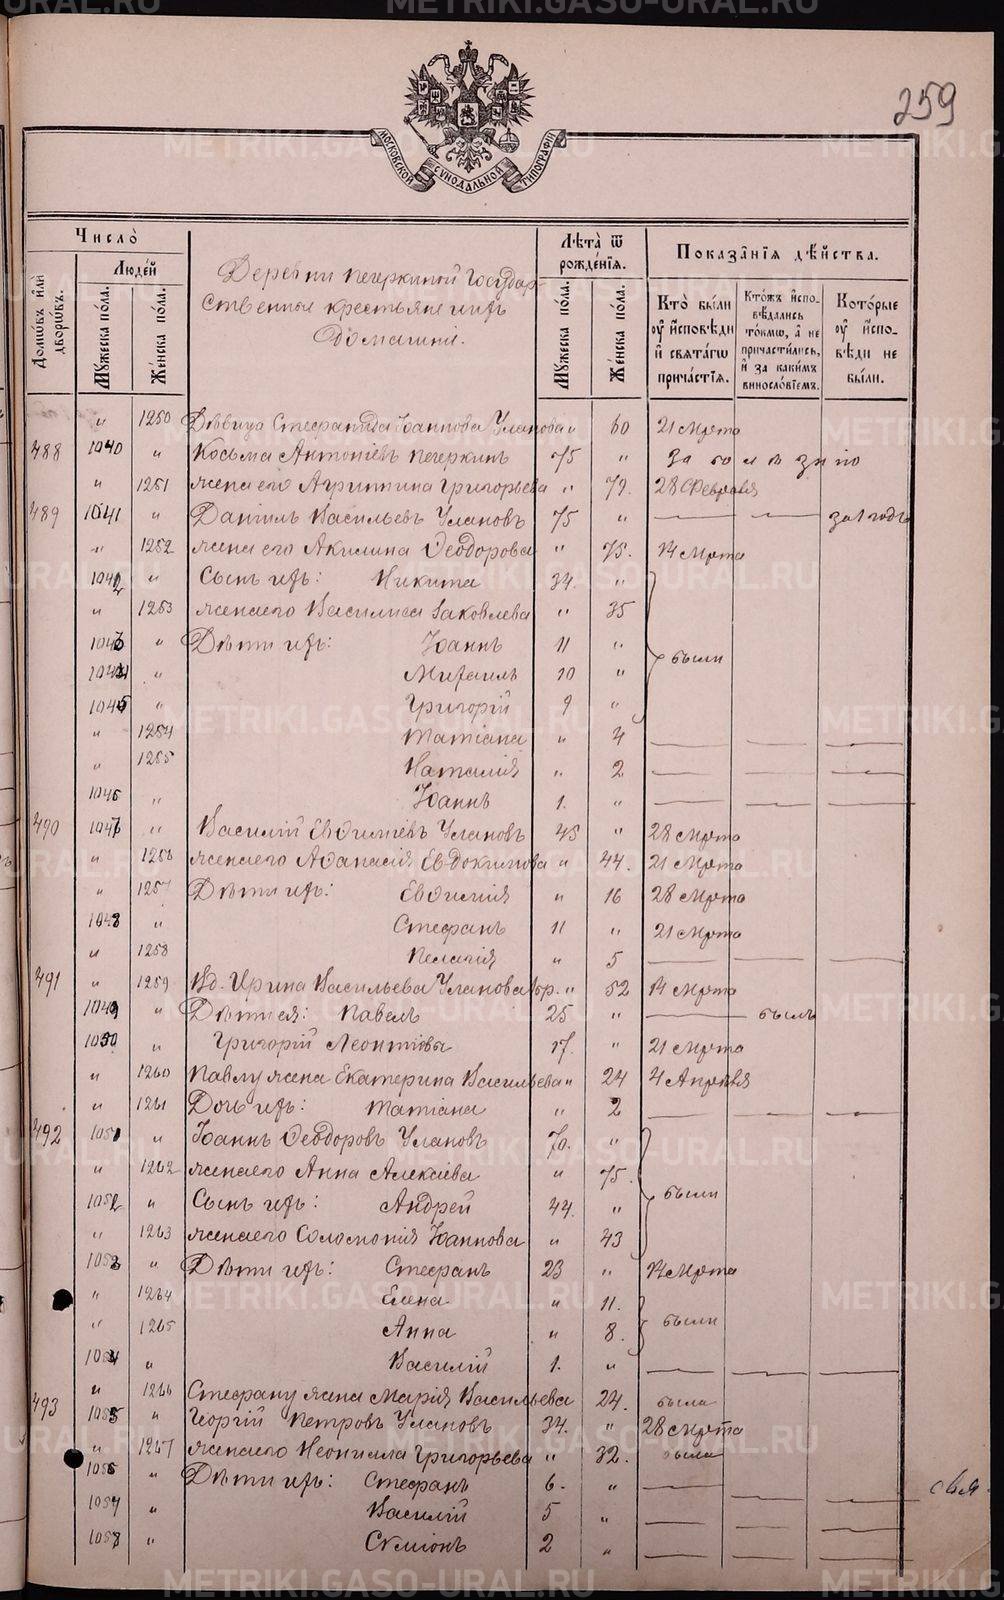 METRIKI.GASO-URAL.RU
259
МОСКОВСКОЙ СѴНОДАЛЬНОЙ ТИПОГРАФІИ
Число̀
Домѡвъ и҆лѝ дворѡвъ.
Люде́й
Мꙋжеска по́ла.
Же́нска по́ла.
Деревни Печеркиной Государ-
ственные крестьяне и ихъ
домашніе.
Лѣта̀ ѿ рожде́нїѧ.
Мꙋжеска по́ла.
Же́нска по́ла.
Показа̑нїѧ дѣ́йства.
Кто̀ бы́ли ᲂу҆ и҆сповѣди и҆ свѧта́гѡ прича́стїѧ.
Кто́жъ и҆споведались то́кмѡ, а҆ не причасти́лись, и҆ за каки́мъ винослови́емъ.
Кото́рые ᲂу҆ и҆сповѣди не бы́ли.
" 1250 Дѣвица Стефанида Іоаннова Уланова " 60 21 марта
488 1040 " Косьма Антоніевъ Печеркинъ 75 " за болѣзнію
" 1251 жена его Агриппина Григорьева " 79. 28 Февраля
489 1041 " Даніилъ Васильевъ Улановъ 75 " — — за 1 годъ
" 1252 жена его Акилина Ѳеодорова " 75. 14 марта
1042 " Сынъ ихъ: Никита 34. "
" 1253 жена его Василиса Іаковлева " 35
1043 " Дѣти ихъ: Іоаннъ 11 " были
1044 " Михаилъ 10 "
1045 " Григорій 9 "
" 1254 Татіана " 4 — — —
" 1255 Наталія " 2 — — —
1046 " Іоаннъ 1. " — — —
490 1047 " Василій Евѳиміевъ Улановъ 45 " 28 марта
" 1256 жена его Аѳанасія Евдокимова " 44. 21 марта
" 1257 Дѣти ихъ: Евѳимія " 16 28 марта
1048 " Стефанъ 11 " 21 марта
" 1258 Пелагія " 5 — — —
491 " 1259 Вд. Ирина Васильева Уланова " 52 14 марта
1049 " Дѣти ея: Павелъ 25 " — былъ
1050 " Григорій Леонтіевы 17. " 21 марта
" 1260 Павлу жена Екатерина Васильева " 24 4 Апрѣля
" 1261 Дочь ихъ: Татіана " 2 — — —
492 1051 " Іоаннъ Ѳеодоровъ Улановъ 70. "
" 1262 жена его Анна Алексіева " 75.
1052 " Сынъ ихъ: Андрей 44. " были
" 1263 жена его Соломонія Іоаннова " 43
1053 " Дѣти ихъ: Стефанъ 23 " 14 марта
" 1264 Елена " 11. были
" 1265 Анна " 8.
1054 " Василій 1. " — — —
" 1266 Стефану жена Марія Васильева 24. была
493 1055 " Георгій Петровъ Улановъ 34. " 28 марта
" 1267 жена его Неонилла Григорьева " 32. была
1056 " Дѣти ихъ: Стефанъ 6. " — — —
1057 " Василій 5 " — — —
1058 " Сѵміонъ 2 " — — —